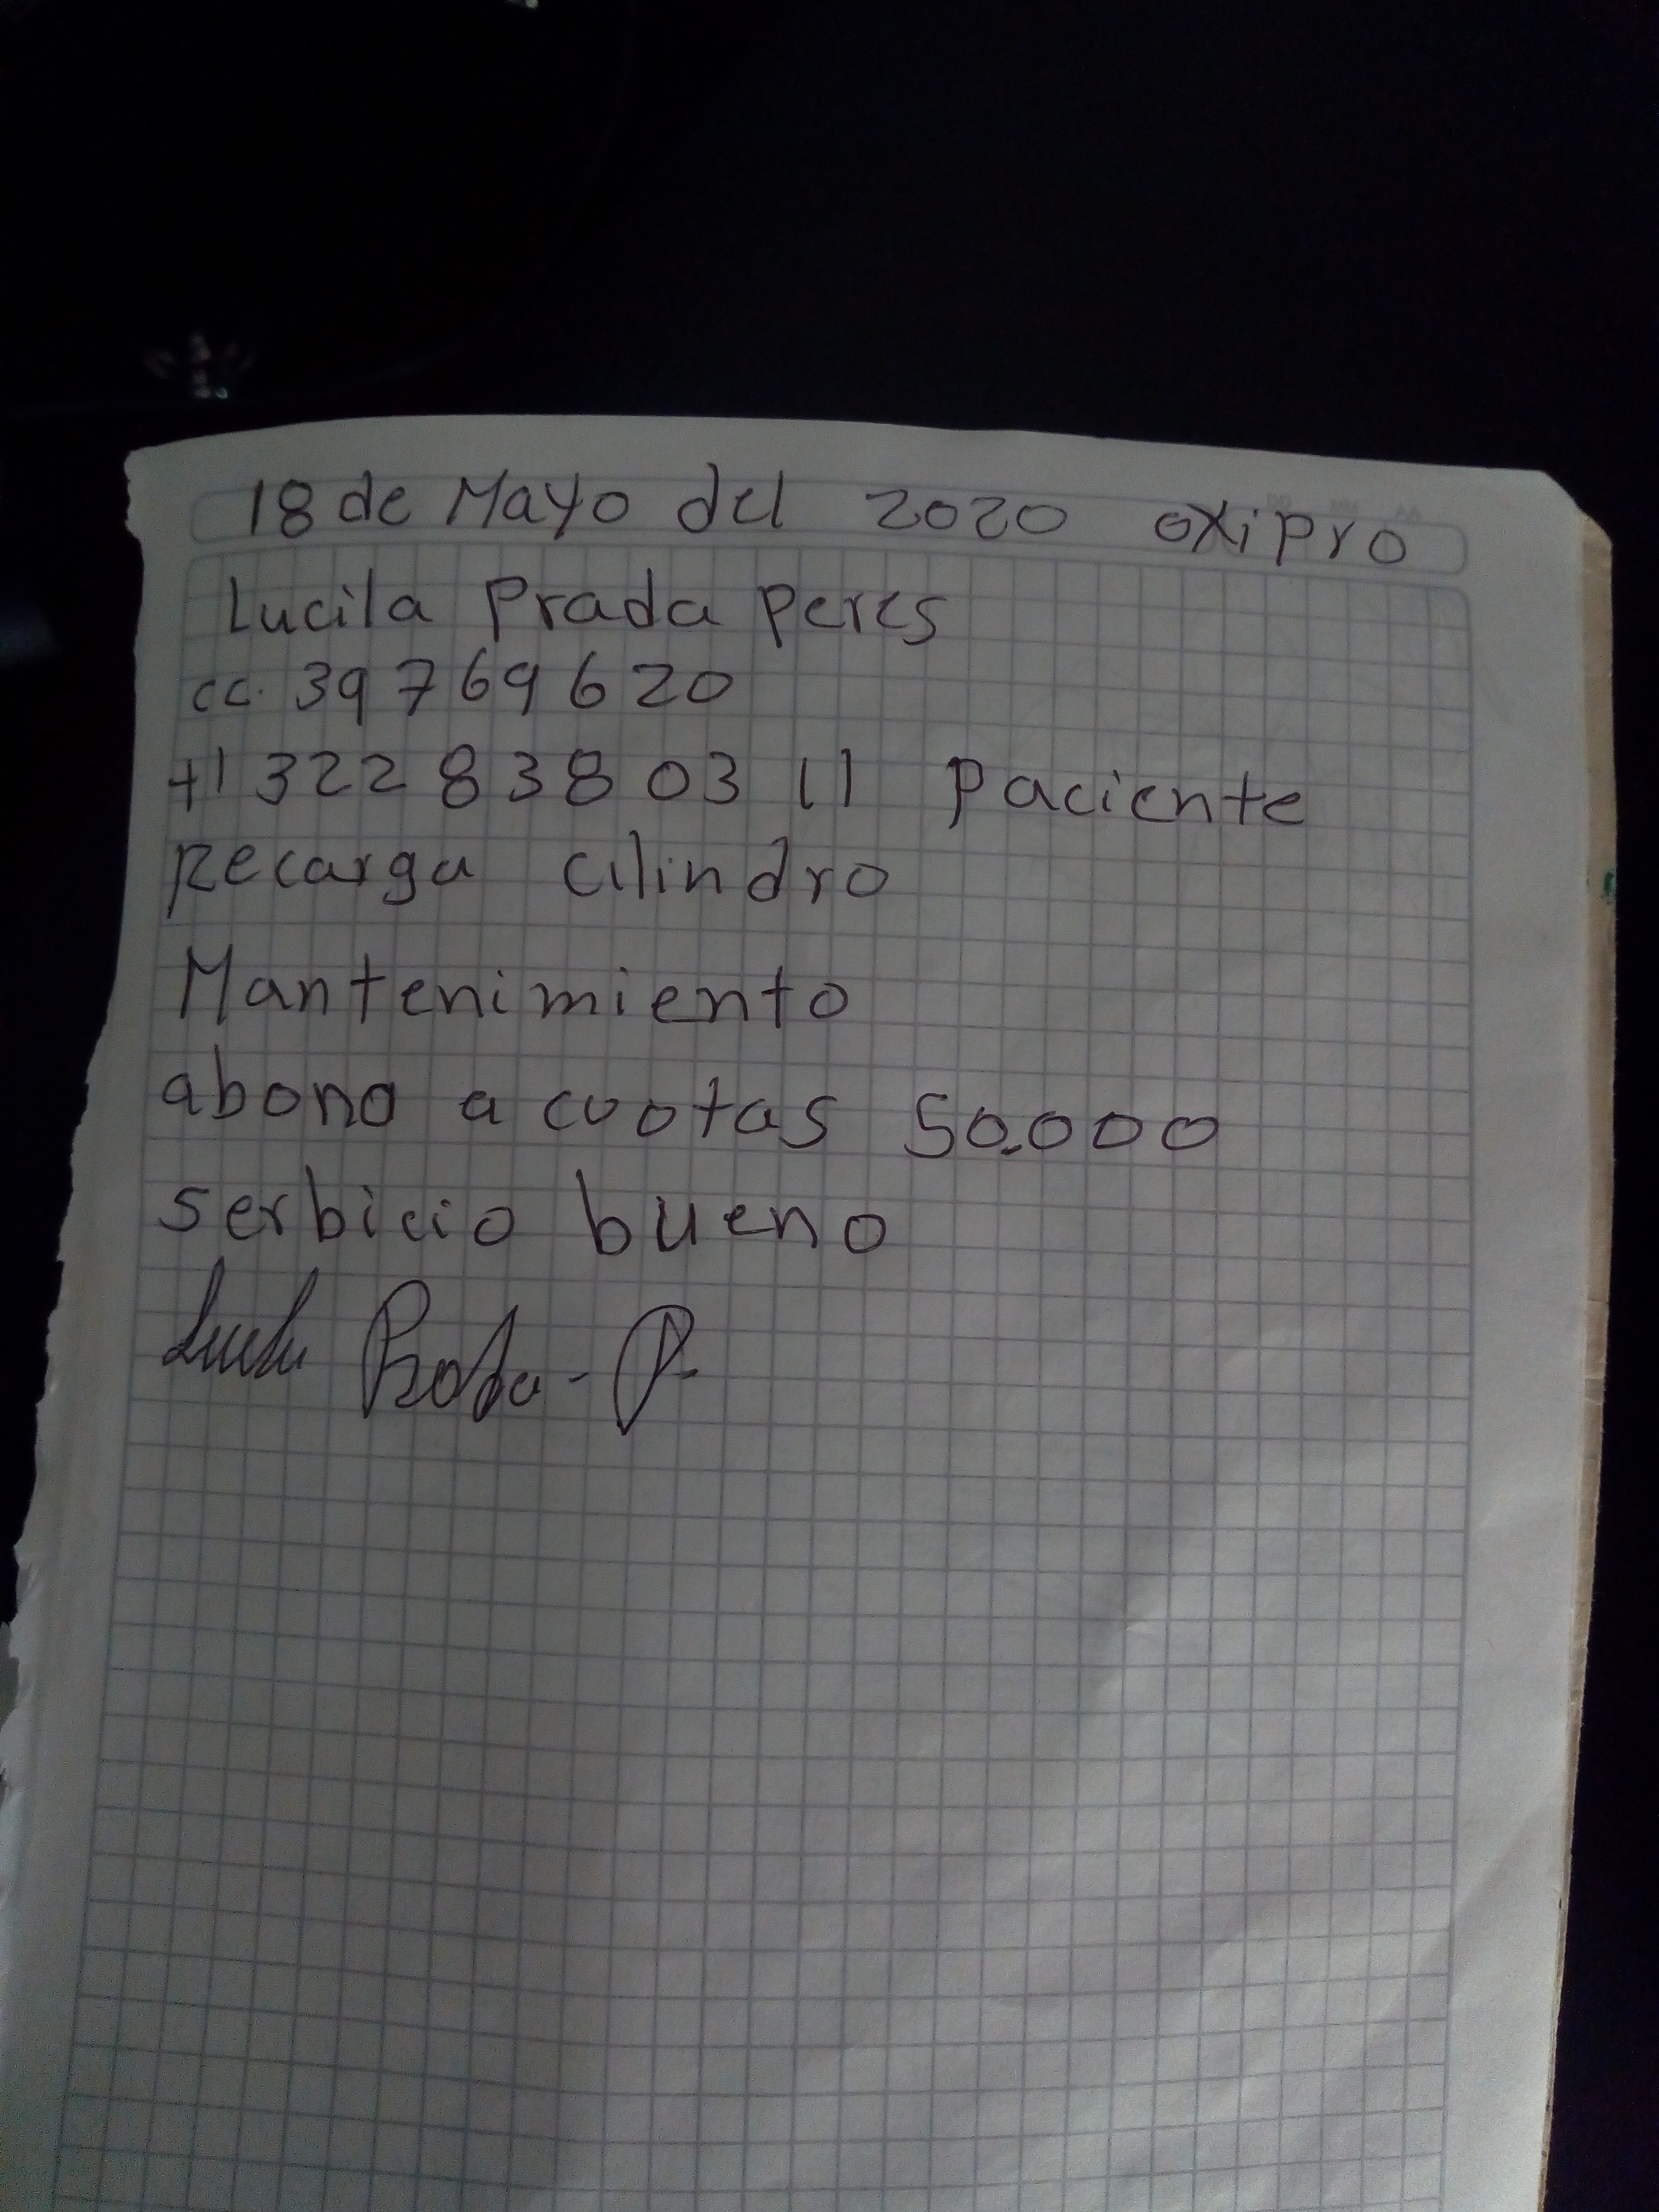 18 de Mayo del 2020 oxipro
Lucila Prada Peres
cc. 39769620
+l 322 83803 11 paciente
Recarga cilindro
Mantenimiento
abono a cuotas 50.000
serbicio bueno
Prada - P.